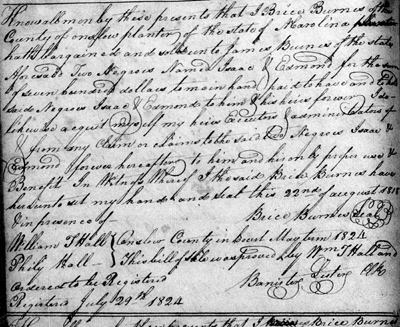 Know all men by these presents that I Brice Burnes of the
County of onslow planter of the state of N carolina
hath Bargained and sold unto James Burnes of the state
Aforesaid Two Negroes Named Isaac & Edmond for the sum
of seven hundred dollars to me in hand paid to have and to hold
said Negroes Isaac & Edmond to him & his heirs forever I do
likewise acquit myself my heirs Executors & admins
from any Claim or claims to the said Negroes Isaac &
Edmond forever hereafter to him and his only proper use &
Benefit In Witness Whereof I the said Brice Burnes have
hereunto set my hand and seal this 22nd of august 1818
in presence of Brice Burnes Seal
William T Hall Onslow County in Court May term 1824
Hall This bill of sale was proved by Wm T Hall and
ordered to be Registered
Registered July 29th 1824 Banister Lister Clk
these presents that I Brice Burnes